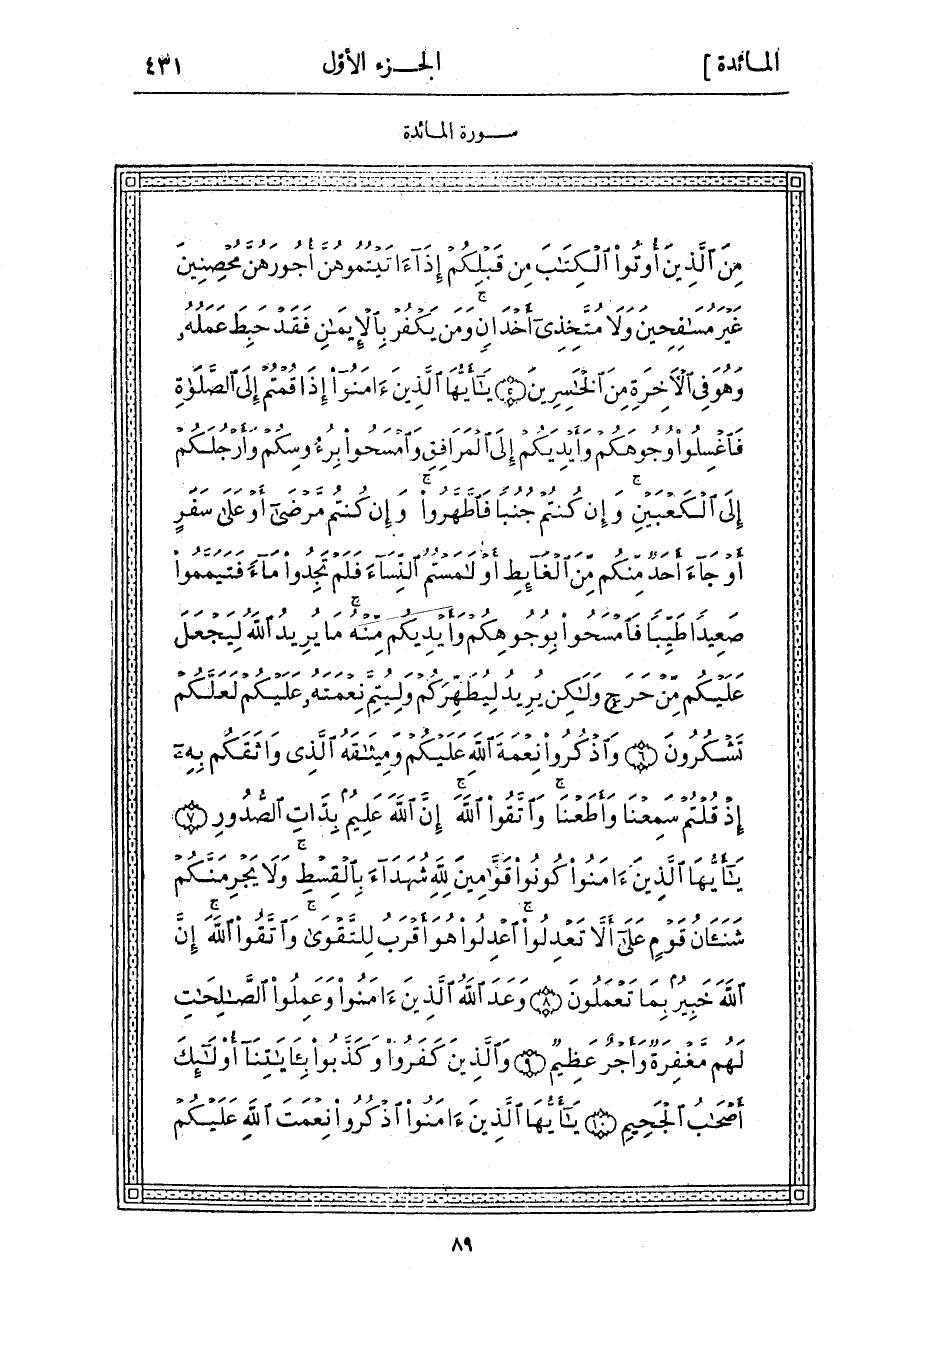 المائدة ]
الجزء الأول
٤٣١
سورة المائدة
مِنَ ٱلَّذِينَ أُوتُوا۟ ٱلْكِتَـٰبَ مِن قَبْلِكُمْ إِذَآ ءَاتَيْتُمُوهُنَّ أُجُورَهُنَّ مُحْصِنِينَ
غَيْرَ مُسَـٰفِحِينَ وَلَا مُتَّخِذِىٓ أَخْدَانٍ ۗ وَمَن يَكْفُرْ بِٱلْإِيمَـٰنِ فَقَدْ حَبِطَ عَمَلُهُۥ
وَهُوَ فِى ٱلْـَٔاخِرَةِ مِنَ ٱلْخَـٰسِرِينَ ﴿٥﴾ يَـٰٓأَيُّهَا ٱلَّذِينَ ءَامَنُوٓا۟ إِذَا قُمْتُمْ إِلَى ٱلصَّلَوٰةِ
فَٱغْسِلُوا۟ وُجُوهَكُمْ وَأَيْدِيَكُمْ إِلَى ٱلْمَرَافِقِ وَٱمْسَحُوا۟ بِرُءُوسِكُمْ وَأَرْجُلَكُمْ
إِلَى ٱلْكَعْبَيْنِ ۚ وَإِن كُنتُمْ جُنُبًا فَٱطَّهَّرُوا۟ ۚ وَإِن كُنتُم مَّرْضَىٰٓ أَوْ عَلَىٰ سَفَرٍ
أَوْ جَآءَ أَحَدٌ مِّنكُم مِّنَ ٱلْغَآئِطِ أَوْ لَـٰمَسْتُمُ ٱلنِّسَآءَ فَلَمْ تَجِدُوا۟ مَآءً فَتَيَمَّمُوا۟
صَعِيدًا طَيِّبًا فَٱمْسَحُوا۟ بِوُجُوهِكُمْ وَأَيْدِيكُم مِّنْهُ ۚ مَا يُرِيدُ ٱللَّهُ لِيَجْعَلَ
عَلَيْكُم مِّنْ حَرَجٍ وَلَـٰكِن يُرِيدُ لِيُطَهِّرَكُمْ وَلِيُتِمَّ نِعْمَتَهُۥ عَلَيْكُمْ لَعَلَّكُمْ
تَشْكُرُونَ ﴿٦﴾ وَٱذْكُرُوا۟ نِعْمَةَ ٱللَّهِ عَلَيْكُمْ وَمِيثَـٰقَهُ ٱلَّذِى وَاثَقَكُم بِهِۦٓ
إِذْ قُلْتُمْ سَمِعْنَا وَأَطَعْنَا ۚ وَٱتَّقُوا۟ ٱللَّهَ ۚ إِنَّ ٱللَّهَ عَلِيمٌۢ بِذَاتِ ٱلصُّدُورِ ﴿٧﴾
يَـٰٓأَيُّهَا ٱلَّذِينَ ءَامَنُوا۟ كُونُوا۟ قَوَّٰمِينَ لِلَّهِ شُهَدَآءَ بِٱلْقِسْطِ ۚ وَلَا يَجْرِمَنَّكُمْ
شَنَـَٔانُ قَوْمٍ عَلَىٰٓ أَلَّا تَعْدِلُوا۟ ۚ ٱعْدِلُوا۟ هُوَ أَقْرَبُ لِلتَّقْوَىٰ ۚ وَٱتَّقُوا۟ ٱللَّهَ ۚ إِنَّ
ٱللَّهَ خَبِيرٌۢ بِمَا تَعْمَلُونَ ﴿٨﴾ وَعَدَ ٱللَّهُ ٱلَّذِينَ ءَامَنُوا۟ وَعَمِلُوا۟ ٱلصَّـٰلِحَـٰتِ
لَهُم مَّغْفِرَةٌ وَأَجْرٌ عَظِيمٌ ﴿٩﴾ وَٱلَّذِينَ كَفَرُوا۟ وَكَذَّبُوا۟ بِـَٔايَـٰتِنَآ أُو۟لَـٰٓئِكَ
أَصْحَـٰبُ ٱلْجَحِيمِ ﴿١٠﴾ يَـٰٓأَيُّهَا ٱلَّذِينَ ءَامَنُوا۟ ٱذْكُرُوا۟ نِعْمَتَ ٱللَّهِ عَلَيْكُمْ
٨٩